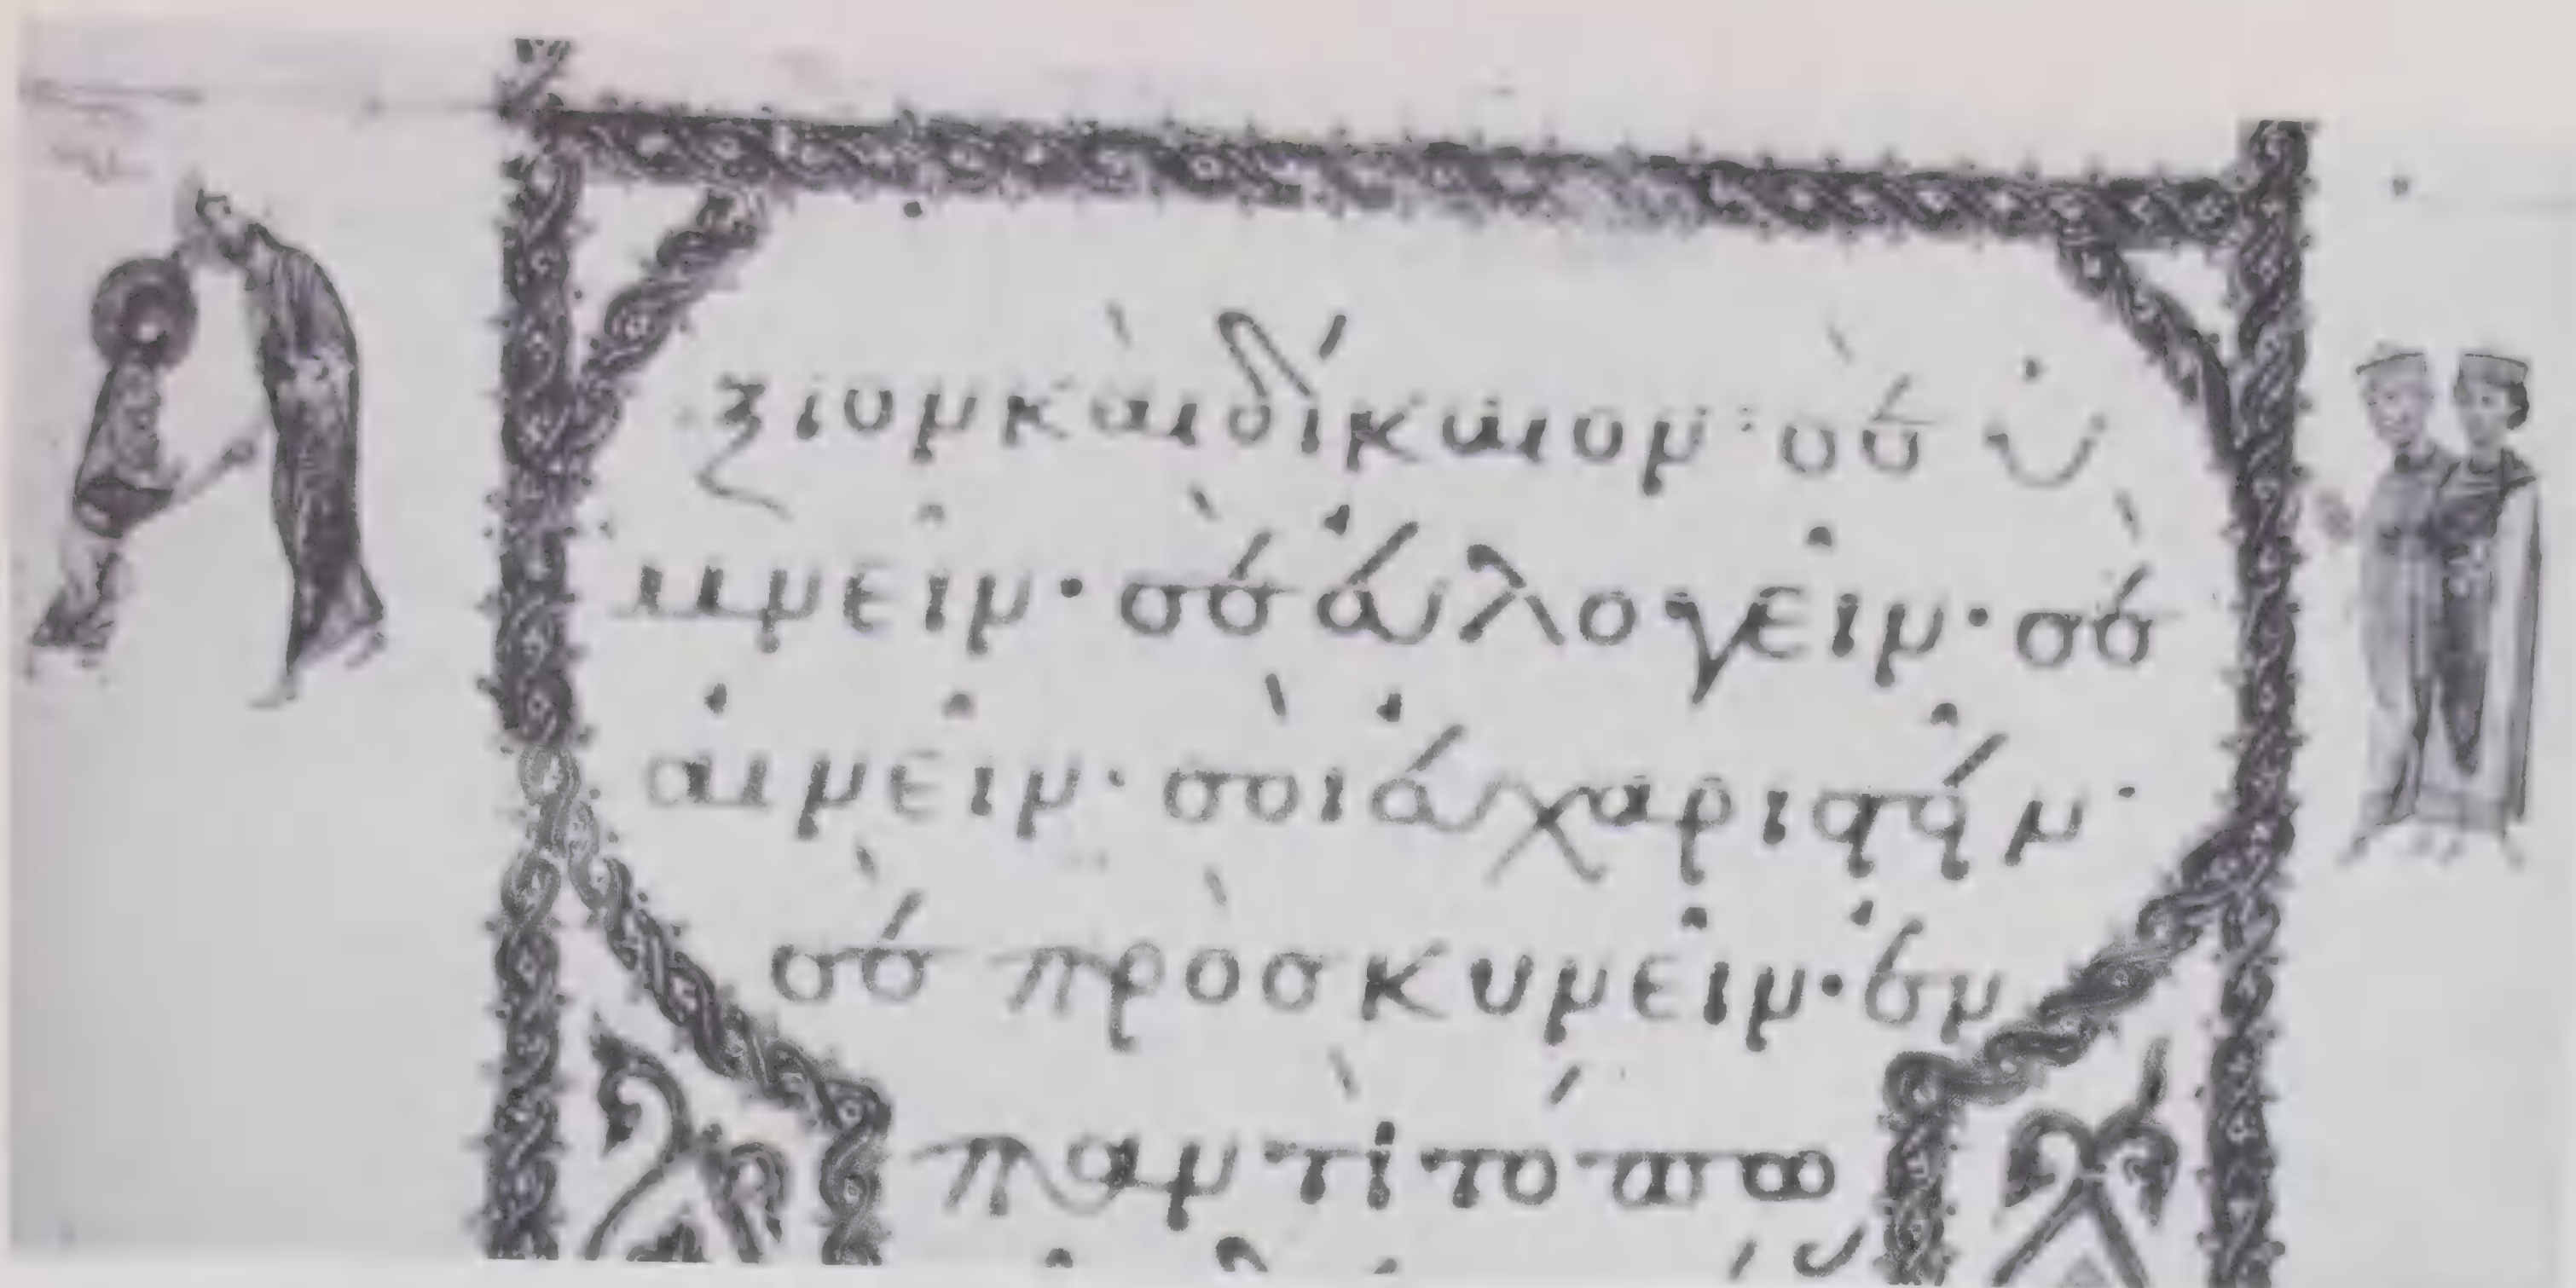 ξιον καὶ δίκαιον· σὲ ὑ
μνεῖν· σὲ εὐλογεῖν· σὲ
αἰνεῖν· σοὶ εὐχαριστεῖν·
σὲ προσκυνεῖν· ἐν
παντὶ τόπω